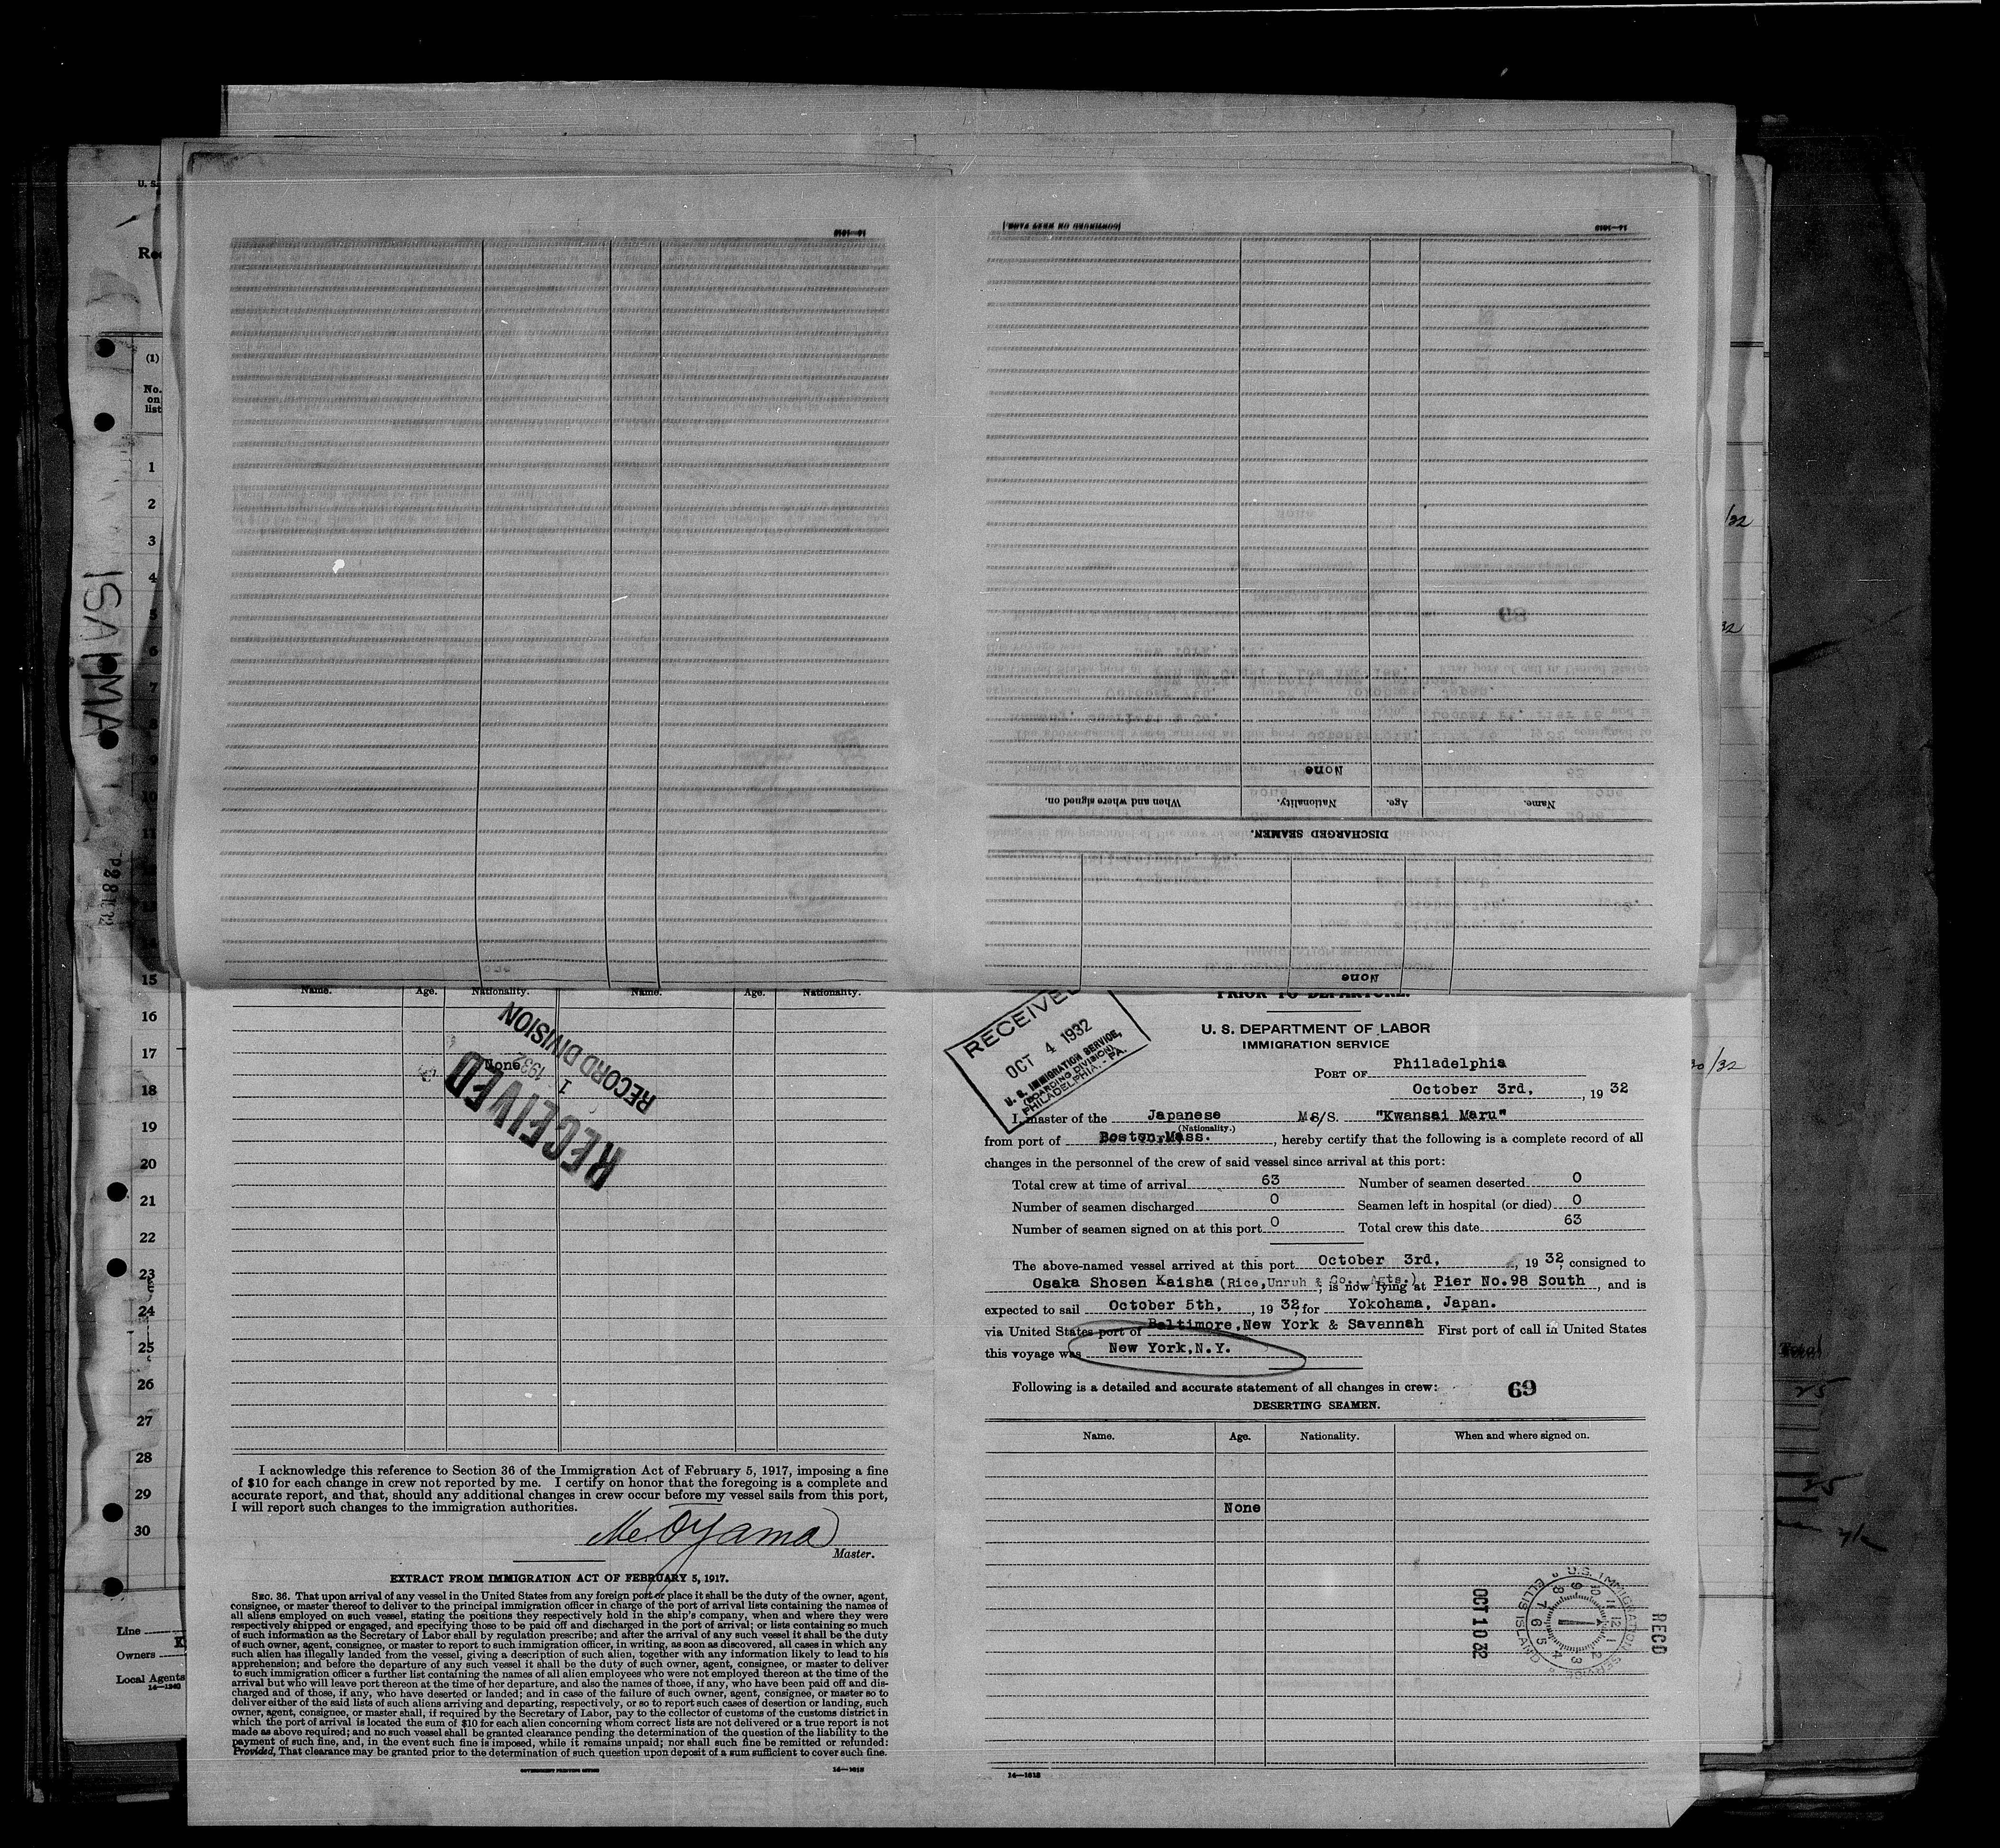 None
Name. Age. Nationality. When and where signed on.
DISCHARGED SEAMEN.
None
U. S.
(1)
No.
on
list
1
2
3
4
5
6
7
8
9
10
11
15
16
17
18
19
20
21
22
23
24
25
26
27
28
29
30
Line
Owners
Local Agents
Name. Age. Nationality. Name. Age. Nationality.
None
RECEIVED
1932
RECORD DIVISION
I acknowledge this reference to Section 36 of the Immigration Act of February 5, 1917, imposing a fine
of $10 for each change in crew not reported by me. I certify on honor that the foregoing is a complete and
accurate report, and that, should any additional changes in crew occur before my vessel sails from this port,
I will report such changes to the immigration authorities.
Oyama
Master.
EXTRACT FROM IMMIGRATION ACT OF FEBRUARY 5, 1917.
SEC. 36. That upon arrival of any vessel in the United States from any foreign port or place it shall be the duty of the owner, agent,
consignee, or master thereof to deliver to the principal immigration officer in charge of the port of arrival lists containing the names of
all aliens employed on such vessel, stating the positions they respectively hold in the ship's company, when and where they were
respectively shipped or engaged, and specifying those to be paid off and discharged in the port of arrival; or lists containing so much
of such information as the Secretary of Labor shall by regulation prescribe; and after the arrival of any such vessel it shall be the duty
of such owner, agent, consignee, or master to report to such immigration officer, in writing, as soon as discovered, all cases in which any
such alien has illegally landed from the vessel, giving a description of such alien, together with any information likely to lead to his
apprehension; and before the departure of any such vessel it shall be the duty of such owner, agent, consignee, or master to deliver
to such immigration officer a further list containing the names of all alien employees who were not employed thereon at the time of the
arrival but who will leave port thereon at the time of her departure, and also the names of those, if any, who have been paid off and dis-
charged and of those, if any, who have deserted or landed; and in case of the failure of such owner, agent, consignee, or master so to
deliver either of the said lists of such aliens arriving and departing, respectively, or so to report such cases of desertion or landing, such
owner, agent, consignee, or master shall, if required by the Secretary of Labor, pay to the collector of customs of the customs district in
which the port of arrival is located the sum of $10 for each alien concerning whom correct lists are not delivered or a true report is not
made as above required; and no such vessel shall be granted clearance pending the determination of the question of the liability to the
payment of such fine, and, in the event such fine is imposed, while it remains unpaid; nor shall such fine be remitted or refunded:
Provided, That clearance may be granted prior to the determination of such question upon deposit of a sum sufficient to cover such fine.
GOVERNMENT PRINTING OFFICE
PRIOR TO DEPARTURE.
RECEIVED
OCT 4 1932
U. S. IMMIGRATION SERVICE,
(BOARDING DIVISION)
PHILADELPHIA. - PA.
U. S. DEPARTMENT OF LABOR
IMMIGRATION SERVICE
PORT OF Philadelphia
October 3rd, , 19 32
I, master of the Japanese M.S/S. "Kwansai Maru"
(Nationality.)
from port of Boston, Mass. , hereby certify that the following is a complete record of all
changes in the personnel of the crew of said vessel since arrival at this port:
Total crew at time of arrival 63 Number of seamen deserted 0
Number of seamen discharged 0 Seamen left in hospital (or died) 0
Number of seamen signed on at this port 0 Total crew this date 63
The above-named vessel arrived at this port October 3rd, , 19 32, consigned to
Osaka Shosen Kaisha (Rice, Unruh & Co., Agts.), is now lying at Pier No.98 South, and is
expected to sail October 5th, , 19 32, for Yokohama, Japan.
via United States port of Baltimore, New York & Savannah First port of call in United States
this voyage was New York, N.Y.
Following is a detailed and accurate statement of all changes in crew: 69
DESERTING SEAMEN.
Name. Age. Nationality. When and where signed on.
None
U.S. IMMIGRATION SERVICE
ELLIS ISLAND
OCT 10 32
RECD